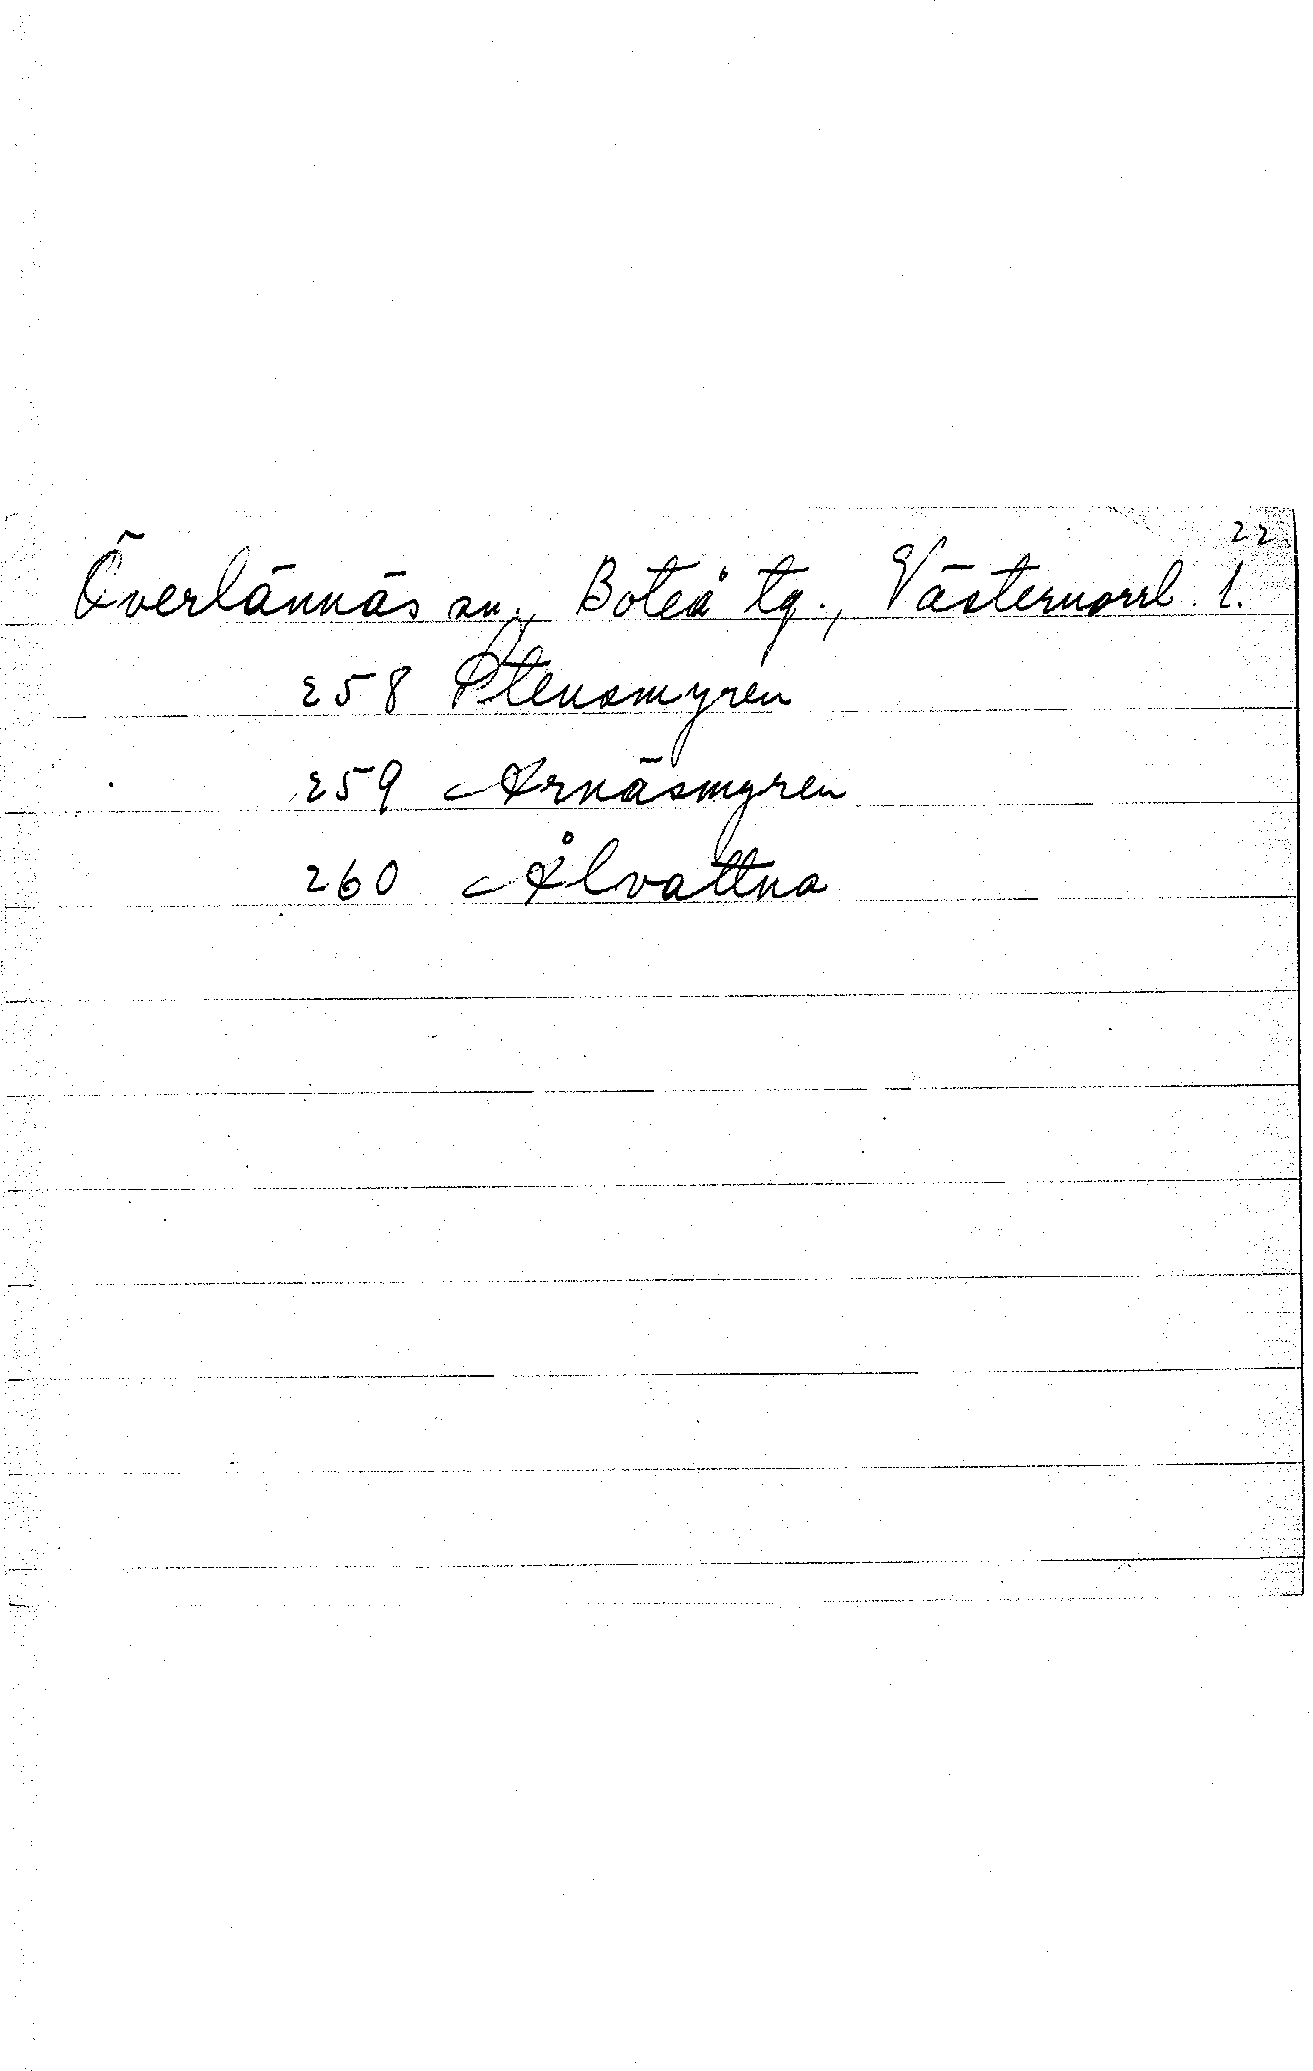 22
Överlännäs sn., Boteå tg., Västernorrl. l.
258 Stensmyren
259 Arnäsmyren
260 Ålvattna